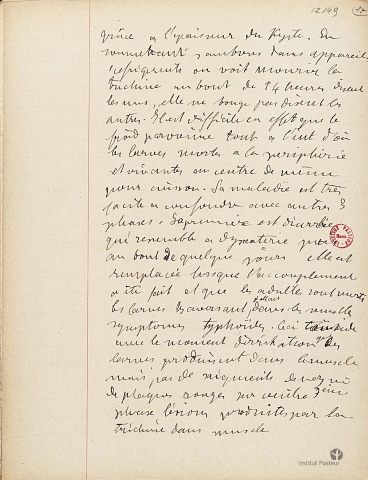 12149
grâce à l'épaisseur du Kyste. En
soumettant jambons dans appareils
réfrigérents on voit mourir la
trichine au bout de 24 heures disent
les uns, elle ne bouge pas disent les
autres. Il est difficile en effet que le
froid parvienne tout à l'int d'où
les larves mortes à la périphérie
et vivantes au centre de même
pour cuisson. La maladie est très
facile à confondre avec autres 3
phases. La première est diarrhée
qui ressemble à dysenterie puis
au bout de quelques jours elle est
remplacée lorsque l'accouplement
a été fait et que les adultes sont morts
les larves s'avançant dans les muscles
symptomes typhoides. Ceci
avec le moment d'irritation des
larves produisent dans le muscle
mais pas de saignements de nez ni
de plaques rouges sur ventre 3eme
phase lésions produites par la
trichine dans muscle
Institut Pasteur